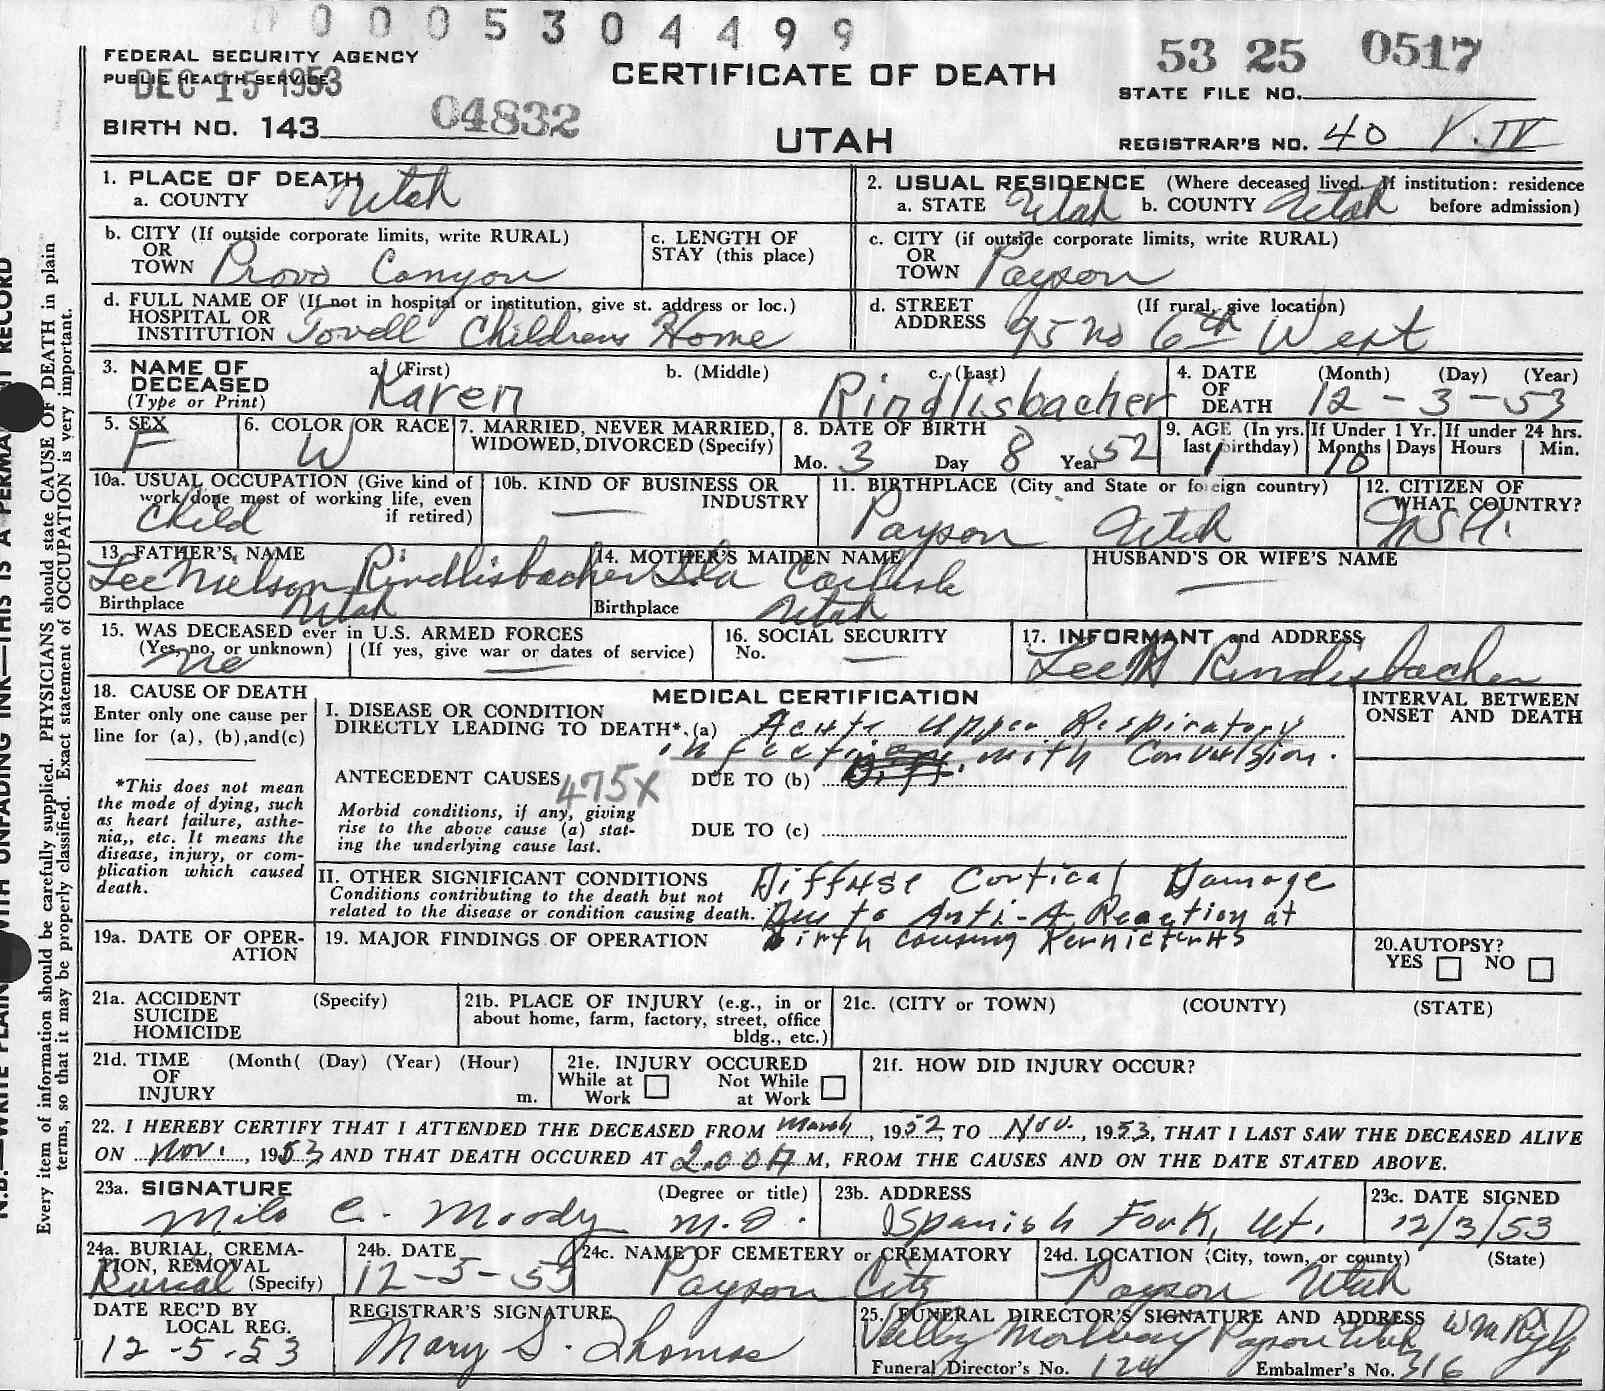 0 0 0 0 5 3 0 4 4 9 9
FEDERAL SECURITY AGENCY
PUBLIC HEALTH SERVICE
DEC 15 1953
CERTIFICATE OF DEATH
UTAH
53 25 0517
STATE FILE NO.
BIRTH NO. 143 04832
REGISTRAR'S NO. 40 V. IV
1. PLACE OF DEATH
a. COUNTY Utah
2. USUAL RESIDENCE (Where deceased lived. If institution: residence
a. STATE Utah b. COUNTY Utah before admission)
b. CITY (If outside corporate limits, write RURAL)
OR
TOWN Provo Canyon
c. LENGTH OF
STAY (this place)
c. CITY (if outside corporate limits, write RURAL)
OR
TOWN Payson
d. FULL NAME OF (If not in hospital or institution, give st. address or loc.)
HOSPITAL OR
INSTITUTION Tovell Childrens Home
d. STREET (If rural, give location)
ADDRESS 95 no 6th West
3. NAME OF
DECEASED
(Type or Print)
a. (First) Karen
b. (Middle)
c. (Last) Rindlisbacher
4. DATE (Month) (Day) (Year)
OF
DEATH 12 - 3 - 53
5. SEX
F
6. COLOR OR RACE
W
7. MARRIED, NEVER MARRIED,
WIDOWED, DIVORCED (Specify)
8. DATE OF BIRTH
Mo. 3 Day 8 Year 52
9. AGE (In yrs.
last birthday) 1
If Under 1 Yr.
Months 10 Days
If under 24 hrs.
Hours Min.
10a. USUAL OCCUPATION (Give kind of
work done most of working life, even
if retired)
Child
10b. KIND OF BUSINESS OR
INDUSTRY
11. BIRTHPLACE (City and State or foreign country)
Payson Utah
12. CITIZEN OF
WHAT COUNTRY?
USA.
13. FATHER'S NAME
Lee Nielson Rindlisbacher
Birthplace Utah
14. MOTHER'S MAIDEN NAME
Ida Carlisle
Birthplace Utah
HUSBAND'S OR WIFE'S NAME
15. WAS DECEASED ever in U.S. ARMED FORCES
(Yes, no, or unknown) (If yes, give war or dates of service)
no
16. SOCIAL SECURITY
No.
17. INFORMANT and ADDRESS
Lee N Rindlisbacher
18. CAUSE OF DEATH
Enter only one cause per
line for (a), (b), and (c)
*This does not mean
the mode of dying, such
as heart failure, asthe-
nia,, etc. It means the
disease, injury, or com-
plication which caused
death.
MEDICAL CERTIFICATION
I. DISEASE OR CONDITION
DIRECTLY LEADING TO DEATH*. (a) Acute upper Respiratory
infection with Convulsion.
ANTECEDENT CAUSES 475X DUE TO (b)
Morbid conditions, if any, giving
rise to the above cause (a) stat-
ing the underlying cause last.
DUE TO (c)
INTERVAL BETWEEN
ONSET AND DEATH
II. OTHER SIGNIFICANT CONDITIONS
Conditions contributing to the death but not
related to the disease or condition causing death.
Diffuse Cortical Damage
Due to Anti-A Reaction at
birth causing Kernicterus
19a. DATE OF OPER-
ATION
19. MAJOR FINDINGS OF OPERATION
20. AUTOPSY?
YES NO
21a. ACCIDENT (Specify)
SUICIDE
HOMICIDE
21b. PLACE OF INJURY (e.g., in or
about home, farm, factory, street, office
bldg., etc.)
21c. (CITY or TOWN) (COUNTY) (STATE)
21d. TIME (Month( (Day) (Year) (Hour)
OF
INJURY m.
21e. INJURY OCCURED
While at Work
Not While at Work
21f. HOW DID INJURY OCCUR?
22. I HEREBY CERTIFY THAT I ATTENDED THE DECEASED FROM March, 1952, TO Nov., 1953, THAT I LAST SAW THE DECEASED ALIVE
ON Nov., 1953 AND THAT DEATH OCCURED AT 2.00 A M, FROM THE CAUSES AND ON THE DATE STATED ABOVE.
23a. SIGNATURE (Degree or title)
Milo C. Moody M.D.
23b. ADDRESS
Spanish Fork, Ut.
23c. DATE SIGNED
12/3/53
24a. BURIAL, CREMA-
TION, REMOVAL
Burial (Specify)
24b. DATE
12-5-53
24c. NAME OF CEMETERY or CREMATORY
Payson City
24d. LOCATION (City, town, or county) (State)
Payson Utah
DATE REC'D BY
LOCAL REG.
12-5-53
REGISTRAR'S SIGNATURE
Mary S. Thomas
25. FUNERAL DIRECTOR'S SIGNATURE AND ADDRESS
Valley Mortuary Payson Utah
Funeral Director's No. 124 Embalmer's No. 316
Every item of information should be carefully supplied. PHYSICIANS should state CAUSE OF DEATH in plain
terms, so that it may be properly classified. Exact statement of OCCUPATION is very important.